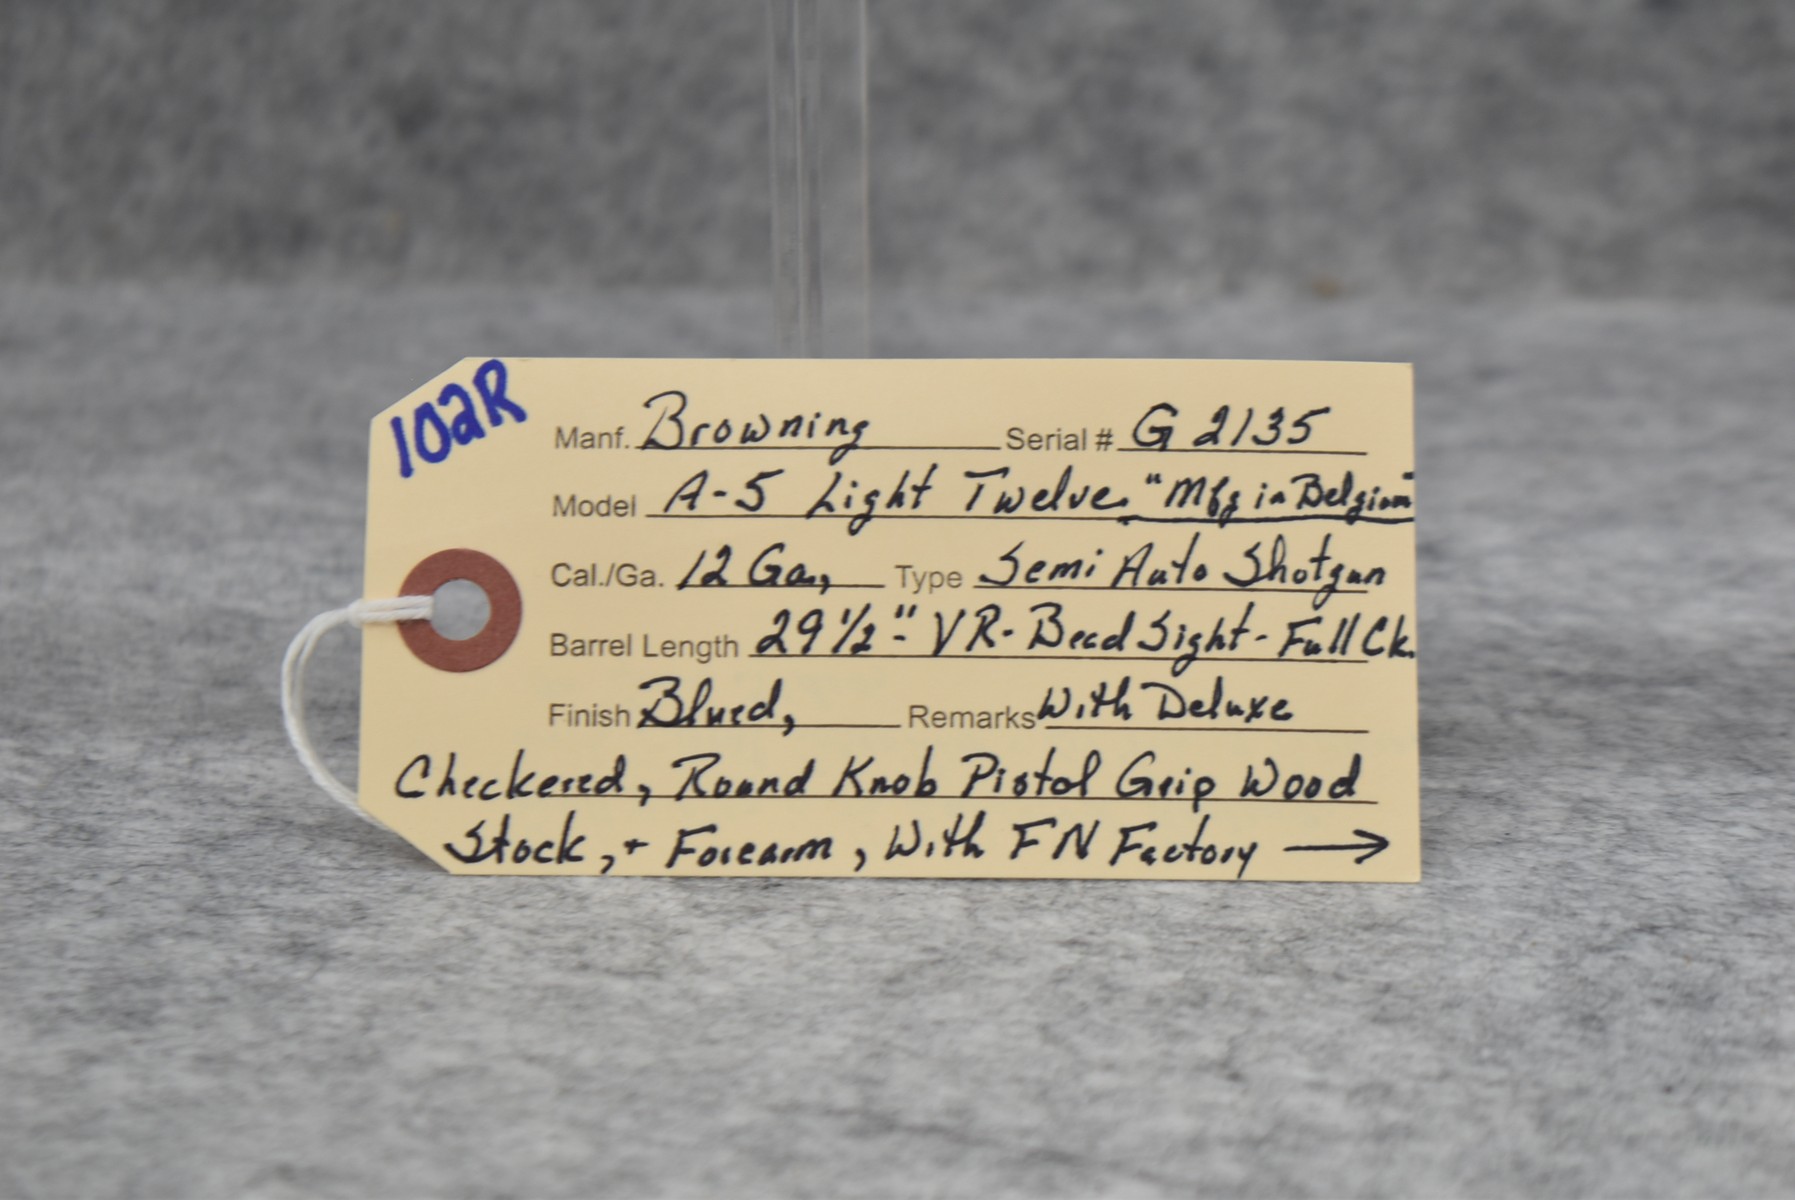 102R
Manf. Browning Serial # G 2135
Model A-5 Light Twelve. "Mfg in Belgium"
Cal./Ga. 12 Ga., Type Semi Auto Shotgun
Barrel Length 29 1/2"- VR- Bead Sight- Full Ck.
Finish Blued, Remarks With Deluxe
Checkered, Round Knob Pistol Grip Wood
Stock, + Forearm, With FN Factory →